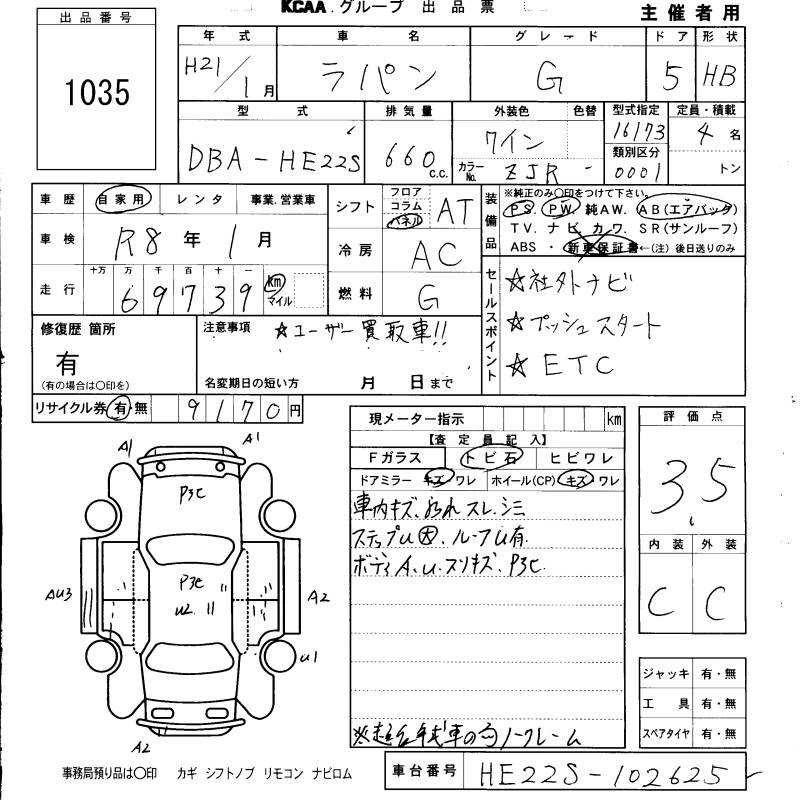 KCAA.グループ 出品票
主催者用
出品番号
1035
年式 車名 グレード ドア 形状
H21/1月 ラパン G 5 HB
型式 排気量 外装色 色替 型式指定 定員・積載
DBA-HE22S 660c.c. ワイン 16173 4名
カラーNo. ZJR - 類別区分 0001 トン
車歴 自家用 レンタ 事業.営業車
シフト フロア コラム パネル AT
装備品 ※純正のみ〇印をつけて下さい。
PS. PW. 純AW. AB(エアバッグ)
TV. ナビ. カワ. SR(サンルーフ)
ABS ・ 新車保証書 ←(注)後日送りのみ
車検 R8年1月
冷房 AC
走行 十万 万 千 百 十 一
69739 Km マイル
燃料 G
セールスポイント
☆社外ナビ
☆プッシュスタート
☆ETC
修復歴 箇所
有
(有の場合は〇印を)
注意事項 ☆ユーザー買取車!!
名変期日の短い方 月 日まで
リサイクル券 有・無 9170円
現メーター指示 km
【査定員記入】
Fガラス トビ石 ヒビワレ
ドアミラー キズ ワレ ホイール(CP) キズ ワレ
車内キズ.汚れ スレ.シミ
ステップU大. ルーフU有.
ボディA.U.スリキズ. P3C.
ノークレーム
評価点
3.5
内装 外装
C C
ジャッキ 有・無
工具 有・無
スペアタイヤ 有・無
A1 A1
P3C
P3C
U2
AU3
A2
U1
A2
事務局預り品は〇印 カギ シフトノブ リモコン ナビロム
車台番号 HE22S-102625